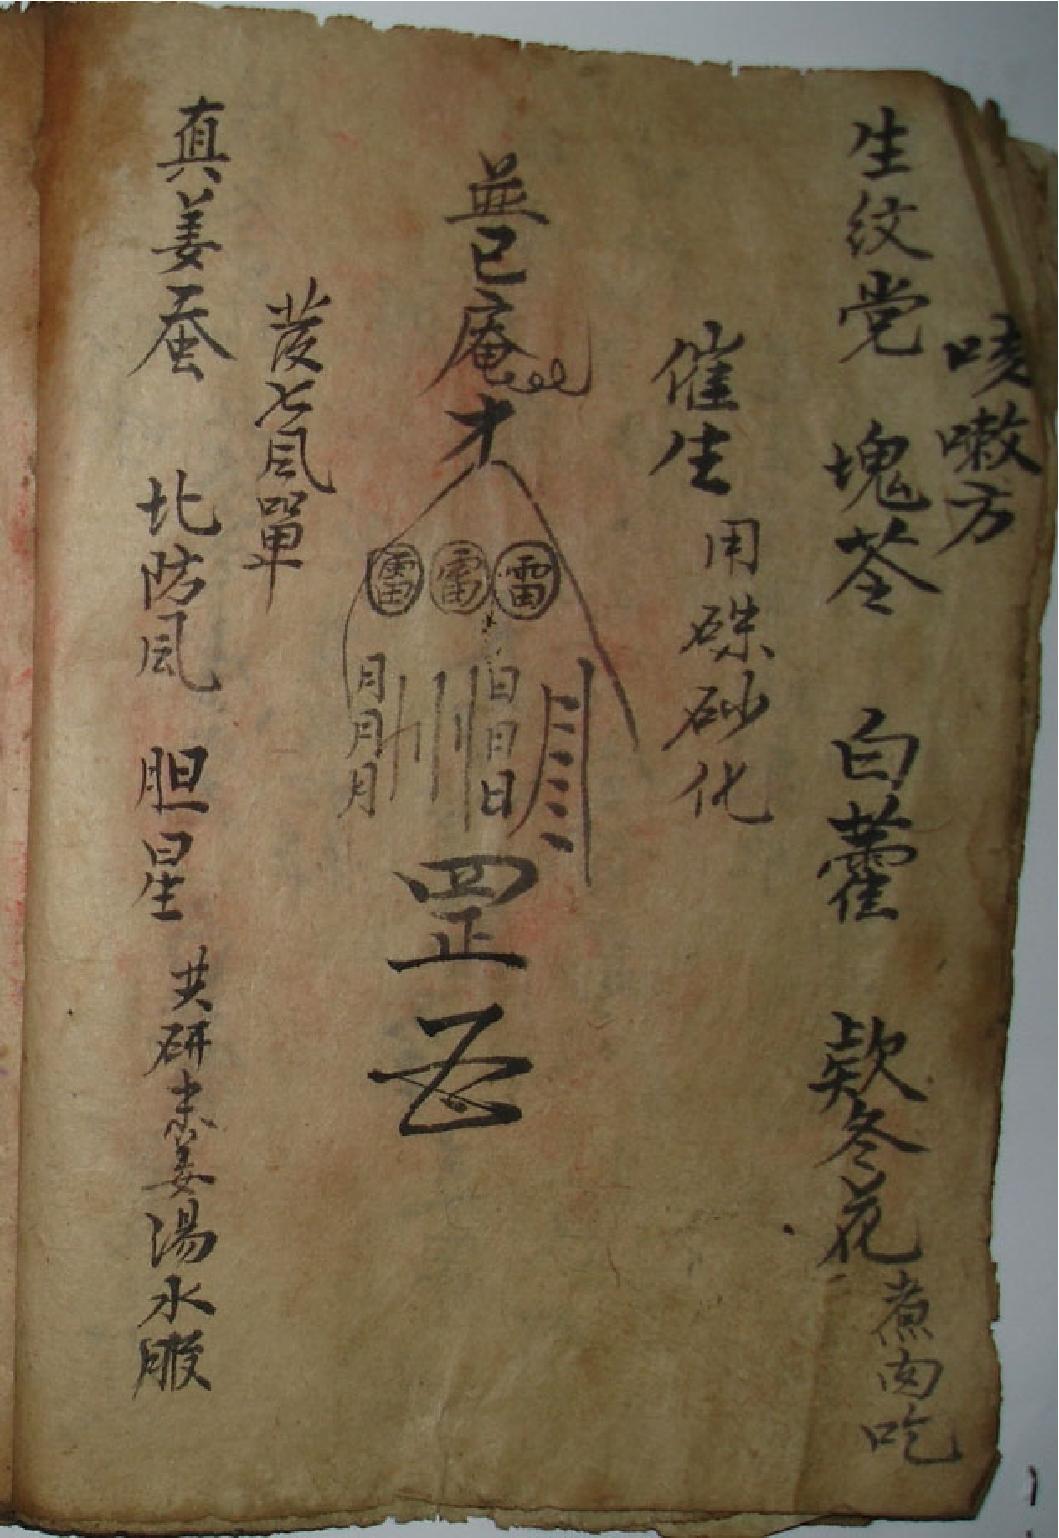 咳嗽方
生紋党 塊苓 白藿 欵冬花 煮肉吃
催生 用硃砂化
雷 雷 雷
月月月
日日日
罡
发七风單
真姜蚕 北防风 胆星 共研末姜湯水服